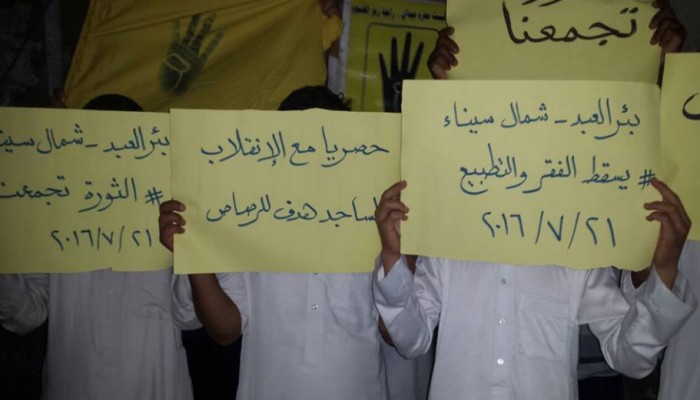 تجمعنا
بئر العبد - شمال سيناء
# يسقط الفقر والتطبيع
٢٠١٦/٧/٢١
حصريا مع الإنقلاب
المساجد هدف للرصاص
بئر العبد - شمال سينا
# الثورة تجمعنا
٢٠١٦/٧/٢١